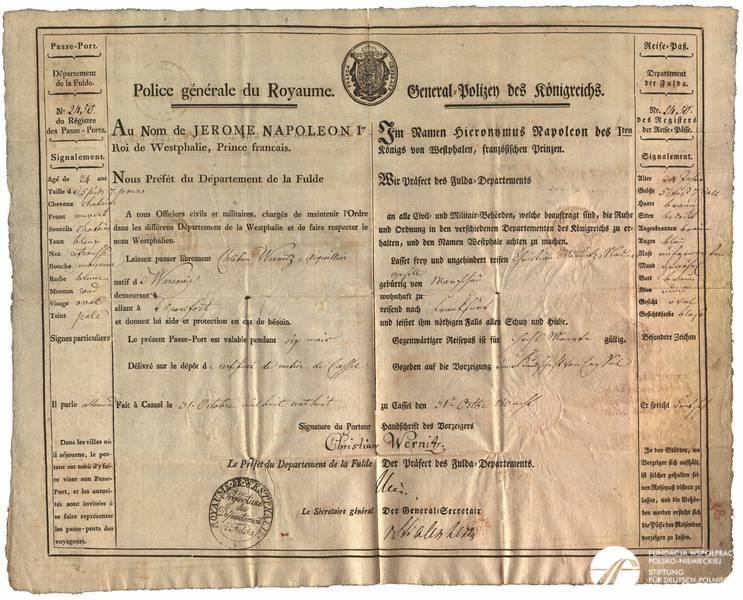 Passe-Port.
Département
de la Fulde.
Nr. 2450.
du Régistre
des Passe-Ports.
Signalement.
Agé de 24 ans
Taille d 5 pieds 7 pouces
Cheveux
Front couvert
Sourcils
Yeux bleux
Nez
Bouche moyenne
Barbe
Menton rond
Visage oval
Teins pale
Signes particuliers
Il parle allemand
Dans les villes où
il séjourne, le por-
teur est tenu d'y fai-
re viser son Passe-
Port, et les autorités
sont invitées à
se faire représenter
les passe-ports des
voyageurs.
Police générale du Royaume.
Au Nom de JEROME NAPOLEON Ier
Roi de Westphalie, Prince francais.
Nous Préfêt du Département de la Fulde
A tous Officiers civils et militaires, chargés de maintenir l'Ordre
dans les différens Département de la Westphalie et de faire respecter le
nom Westphalien.
Laissez passer librement Christian Wernitz
natif d Warsovie
demeurant à
allant à Francfort
et donnez lui aide et protection en cas de bésoin.
Le présent Passe-Port est valable pendant six mois
Délivré sur le dépôt de certificat de metier de Cassel
Fait à Cassel le 31. Octobre mil huit cent huit
Signature du Porteur
Christian Wernitz
Le Préfet du Departement de la Fulde
ROYAUME DE WESTPHALIE
Préfecture
du
Département
de la Fulde
Le Sécrétaire général
General-Polizey des Königreichs.
Im Namen Hieronymus Napoleon des Iten
Königs von Westphalen, französischen Prinzen.
Wir Präfect des Fulda-Departements
an alle Civil- und Militair-Behörden, welche beauftragt sind, die Ruhe
und Ordnung in den verschiedenen Departements des Königreichs zu er-
halten, und den Namen Westphale achten zu machen.
Lasset frey und ungehindert reisen Christian Wernitz
gebürtig von Warschau
wohnhaft zu
reisend nach Frankfurt
und leistet ihm nöthigen Falls allen Schutz und Hülfe.
Gegenwärtiger Reisepaß ist für sechs Monate gültig.
Gegeben auf die Vorzeigung
zu Cassel den 31n Octbr
Handschrift des Vorzeigers
Der Präfect des Fulda-Departements.
Der General-Secretair
Reise-Paß.
Departement
der Fulda.
Nr. 2450.
des Registers
der Reise-Pässe.
Signalement.
Alter 24 Jahre
Größe 5 Fuß 7 Zoll
Haare braun
Stirn bedeckt
Augenbraunen braun
Augen blau
Nase
Mund
Bart
Kinn rund
Gesicht oval
Gesichtsfarbe blaß
Besondere Zeichen
Er spricht deutsch
In den Städten, wo
Vorzeiger sich aufhält,
ist solcher gehalten
seinen Reisepaß visiren zu
lassen, und die Behör-
den werden ersucht sich
die Pässe der Reisenden
vorzeigen zu lassen.
FUNDACJA WSPÓŁPRAC
POLSKO-NIEMIECKIEJ
STIFTUNG
FÜR DEUTSCH-POLNIS